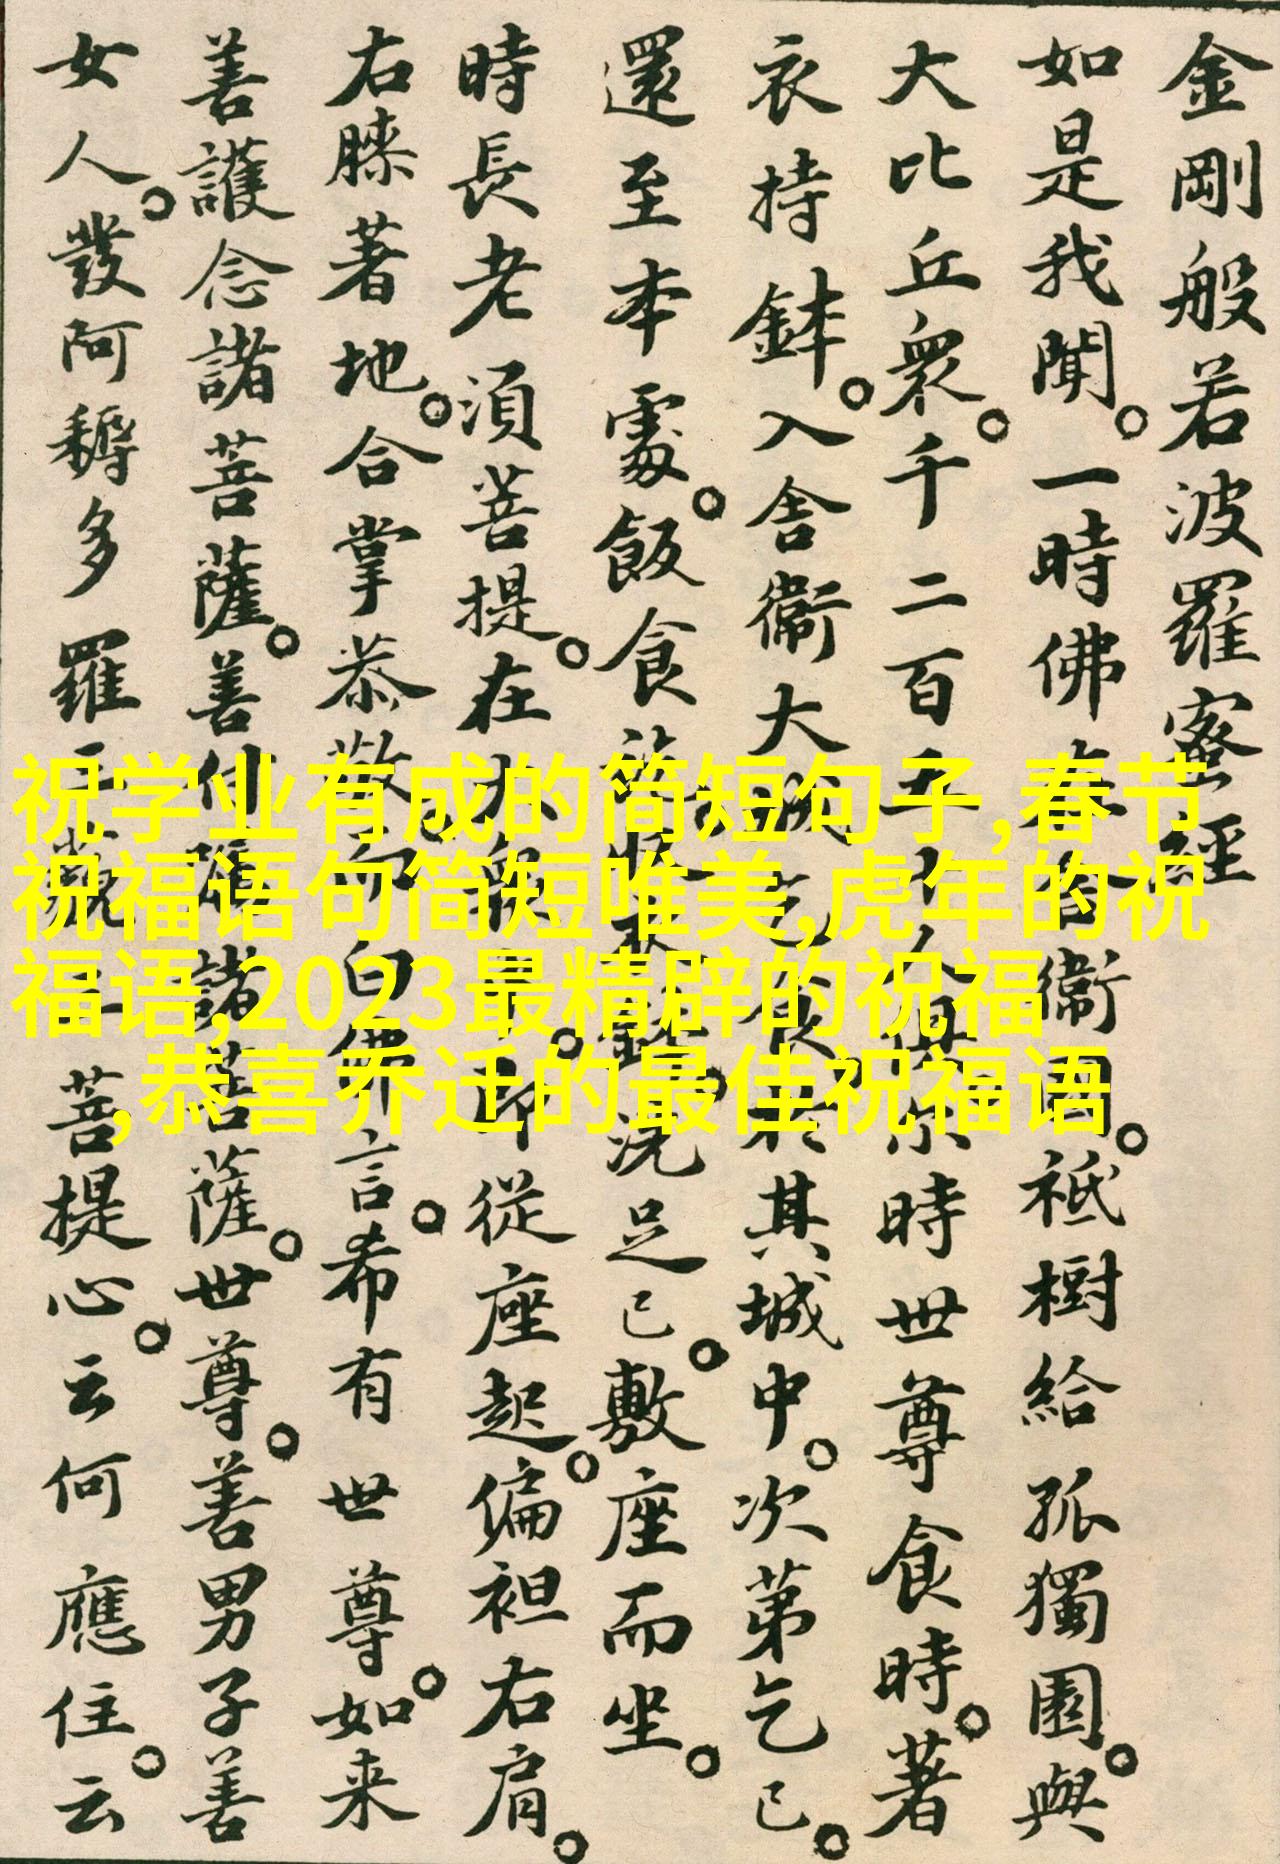 金剛般若波羅蜜經
如是我聞。一時佛在舍衛国。祗樹給孤獨園。與
大比丘衆。千二百五十人俱尒時世尊食時。著
衣持鉢。入舍衛大城乞食於其城中。次第乞已。
還至本處。飯食訖收衣鉢。洗足已。敷座而坐。
時長老須菩提。在大衆中。即從座起。偏袒右肩。
右膝著地。合掌恭敬。而白佛言。希有世尊。如来
善護念諸菩薩。善付囑諸菩薩。世尊。善男子善
女人。發阿耨多羅三藐三菩提心。云何應住。云
祝学业有成的简短句子,春节
祝福语句简短唯美,虎年的祝
福语,2023最精辟的祝福
,恭喜乔迁的最佳祝福语